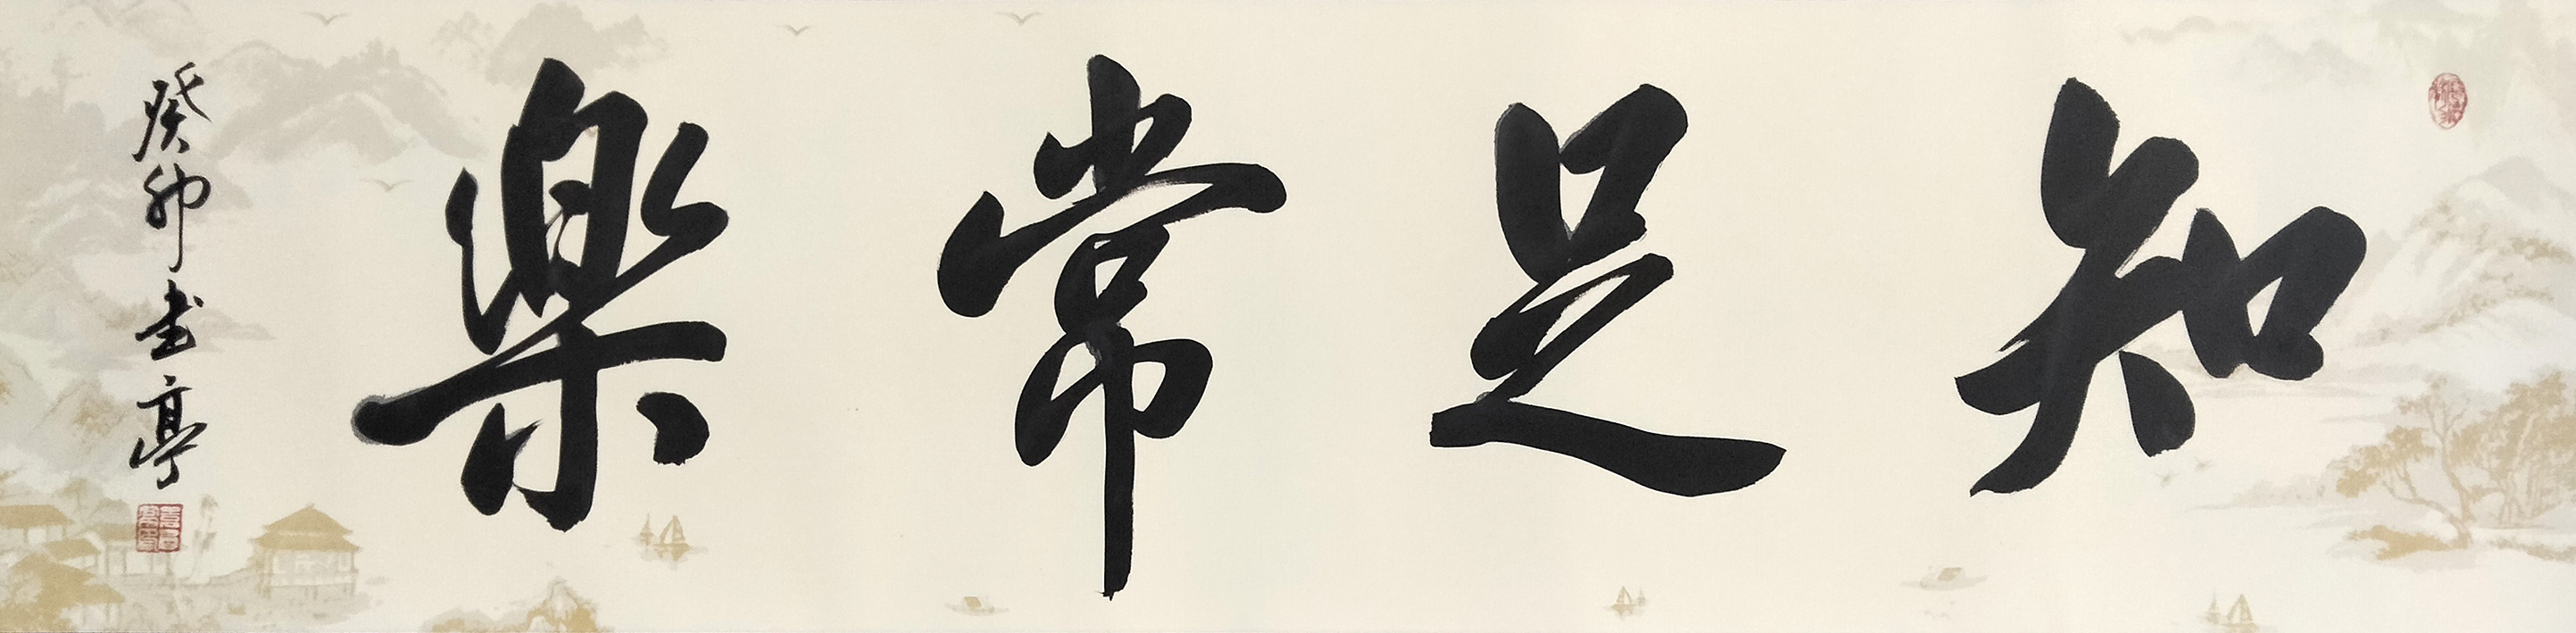 知足常樂
癸卯書亭